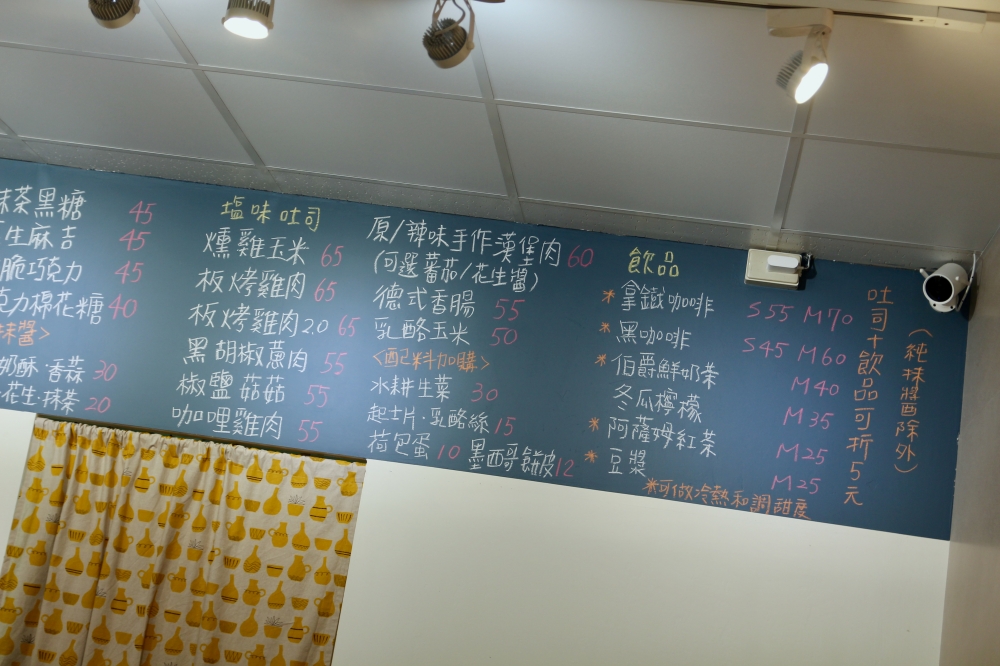 抹茶黑糖 45
生麻吉 45
脆巧克力 45
克力棉花糖 40
抹醬>
奶酥·香蒜 30
花生·抹茶 20
塩味吐司
燻雞玉米 65
板烤雞肉 65
板烤雞肉2.0 65
黑胡椒蔥肉 55
椒鹽菇菇 55
咖哩雞肉 55
原/辣味手作漢堡肉 60
(可選蕃茄/花生醬)
德式香腸 55
乳酪玉米 50
<配料加購>
水耕生菜 30
起士片·乳酪絲 15
荷包蛋 10 墨西哥餅皮 12
飲品
*拿鐵咖啡 S55 M70
*黑咖啡 S45 M60
*伯爵鮮奶茶 M40
冬瓜檸檬 M35
*阿薩姆紅茶 M25
*豆漿 M25
*可做冷熱和調甜度
吐司+飲品可折5元
(純抹醬除外)